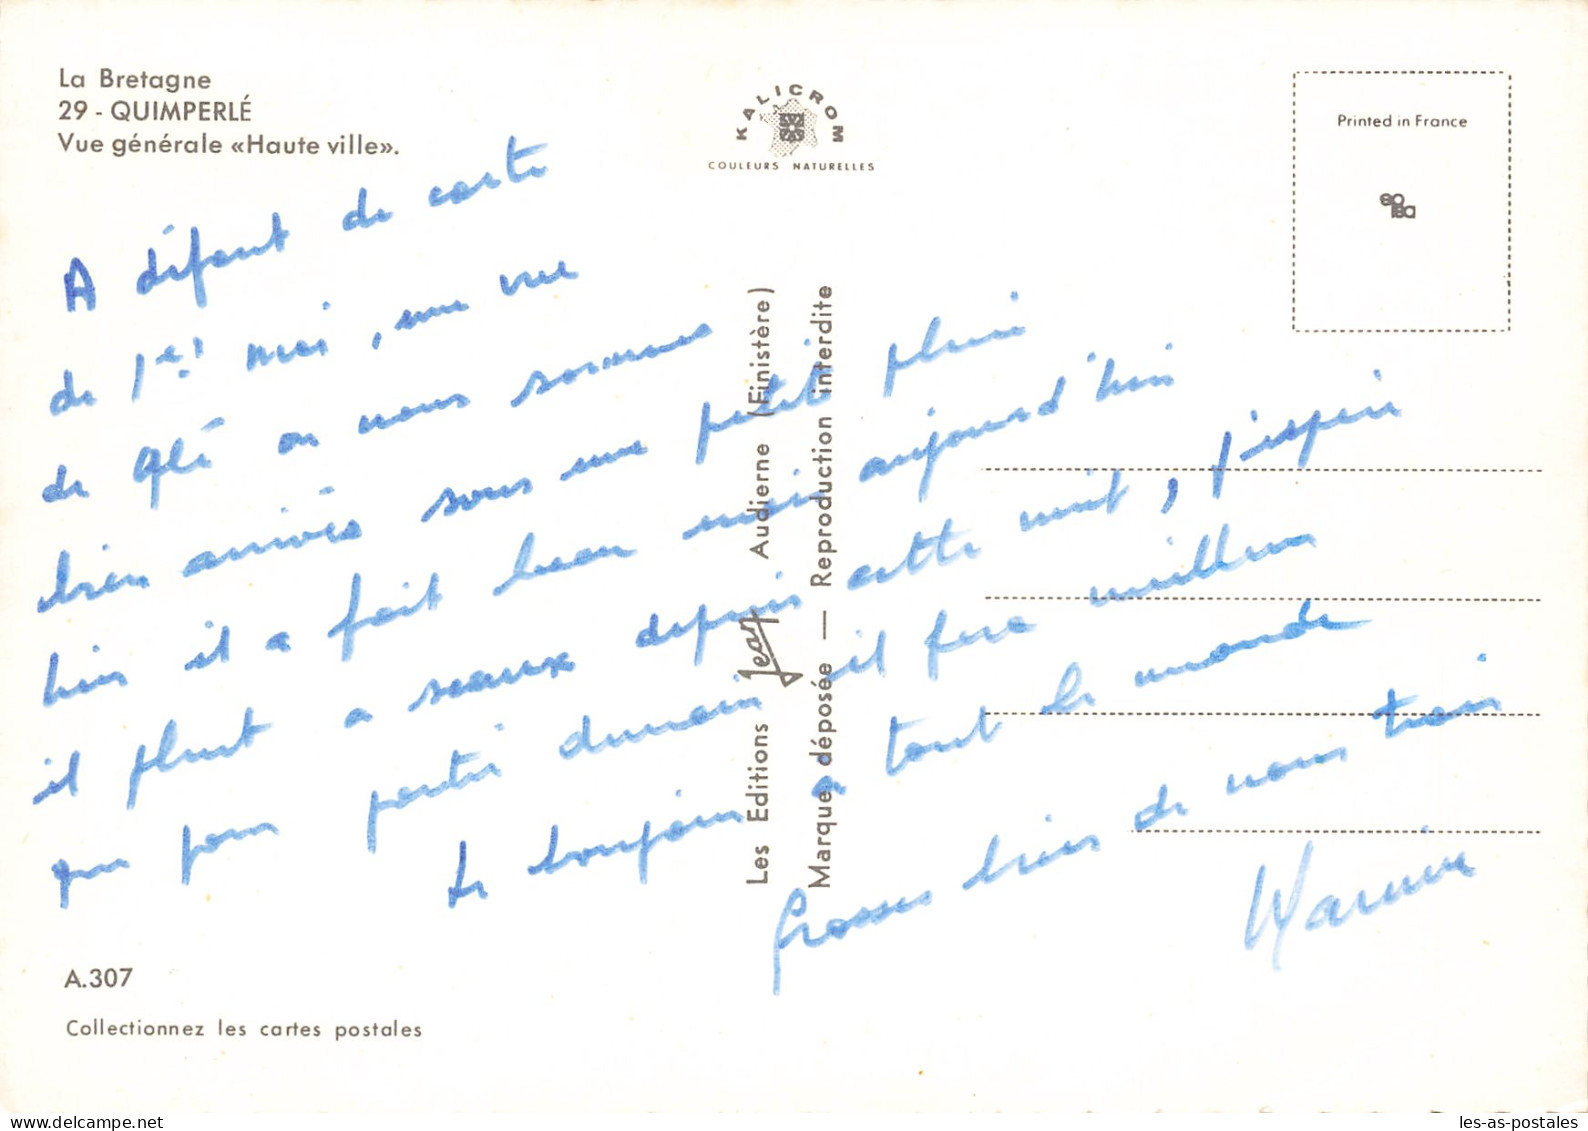 La Bretagne
29 - QUIMPERLÉ
Vue générale «Haute ville».
KALICROM
COULEURS NATURELLES
Printed in France
A défaut de carte
de 1er mai, une vue
de Qlé on nous sommes
bien arrivés sous une petite pluie
hier il a fait beau mais aujourd'hui
il pleut a seaux depuis cette nuit, j'espère
que pour partir demain il fera meilleur
Le bonjour a tout le monde
Grosses bises de nous trois
Les Editions Jean Audierne (Finistère)
Marque déposée — Reproduction interdite
A.307
Collectionnez les cartes postales
Delcampe.net
les-as-postales